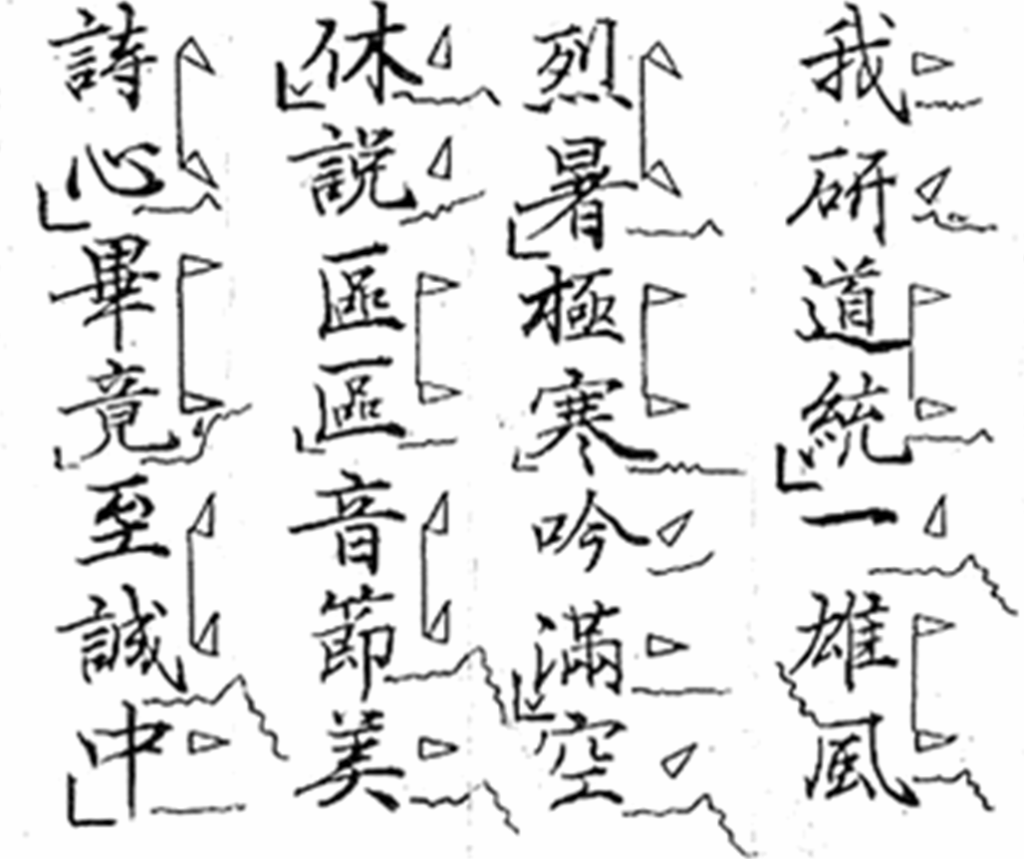 我研道統一雄風
烈暑極寒吟滿空
休說區區音節美
詩心畢竟至誠中